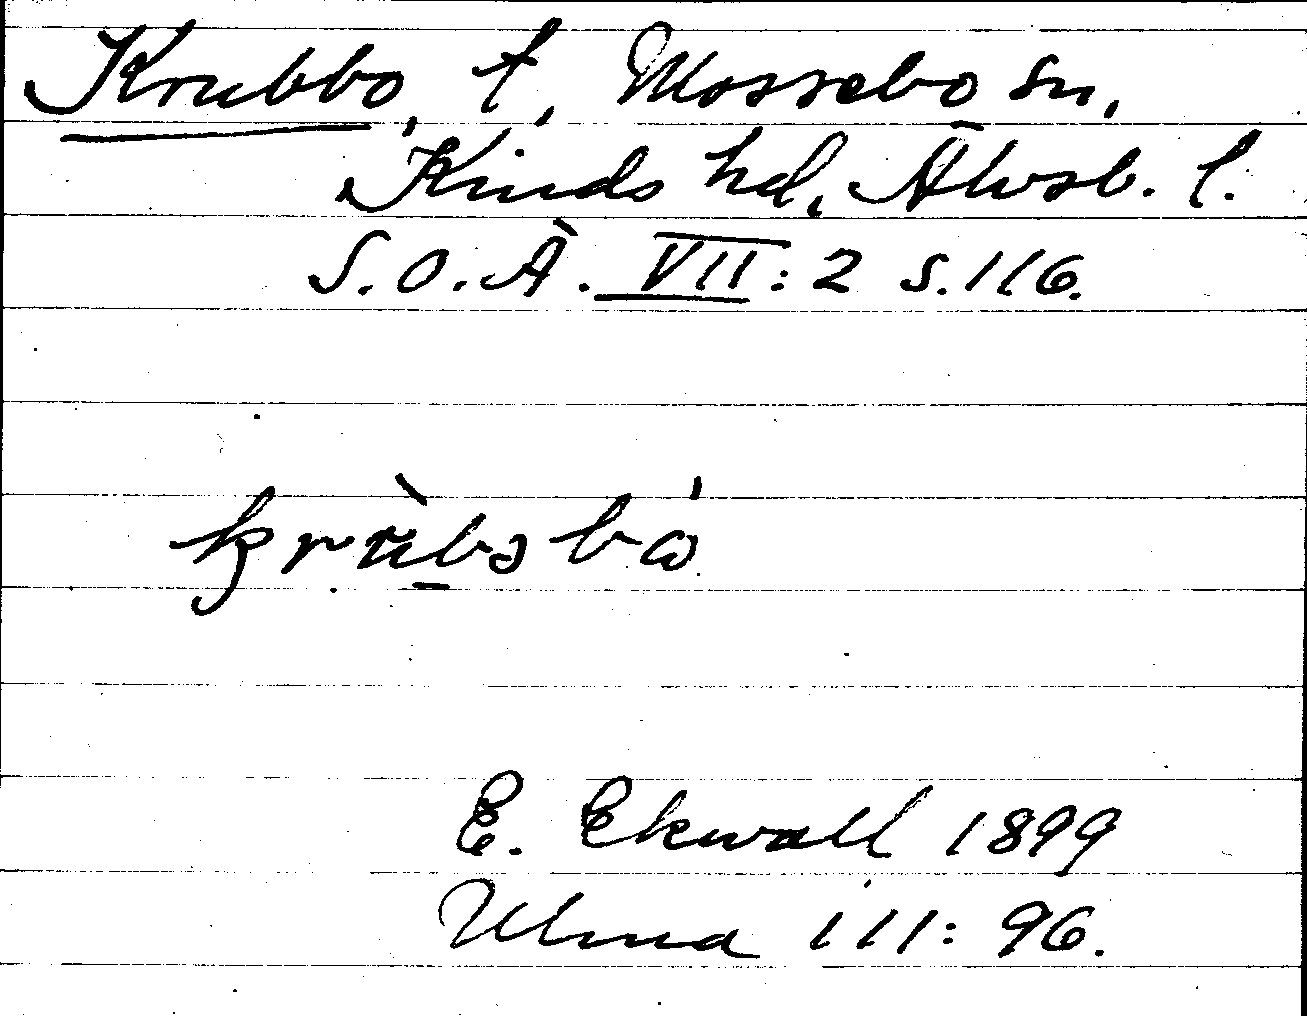 Krubbo, t, Mossebo sn,
Kinds hd, Älvsb. l.
S.O.Ä. VII: 2 s. 116.
E. Ekwall 1899
Ulma 111: 96.